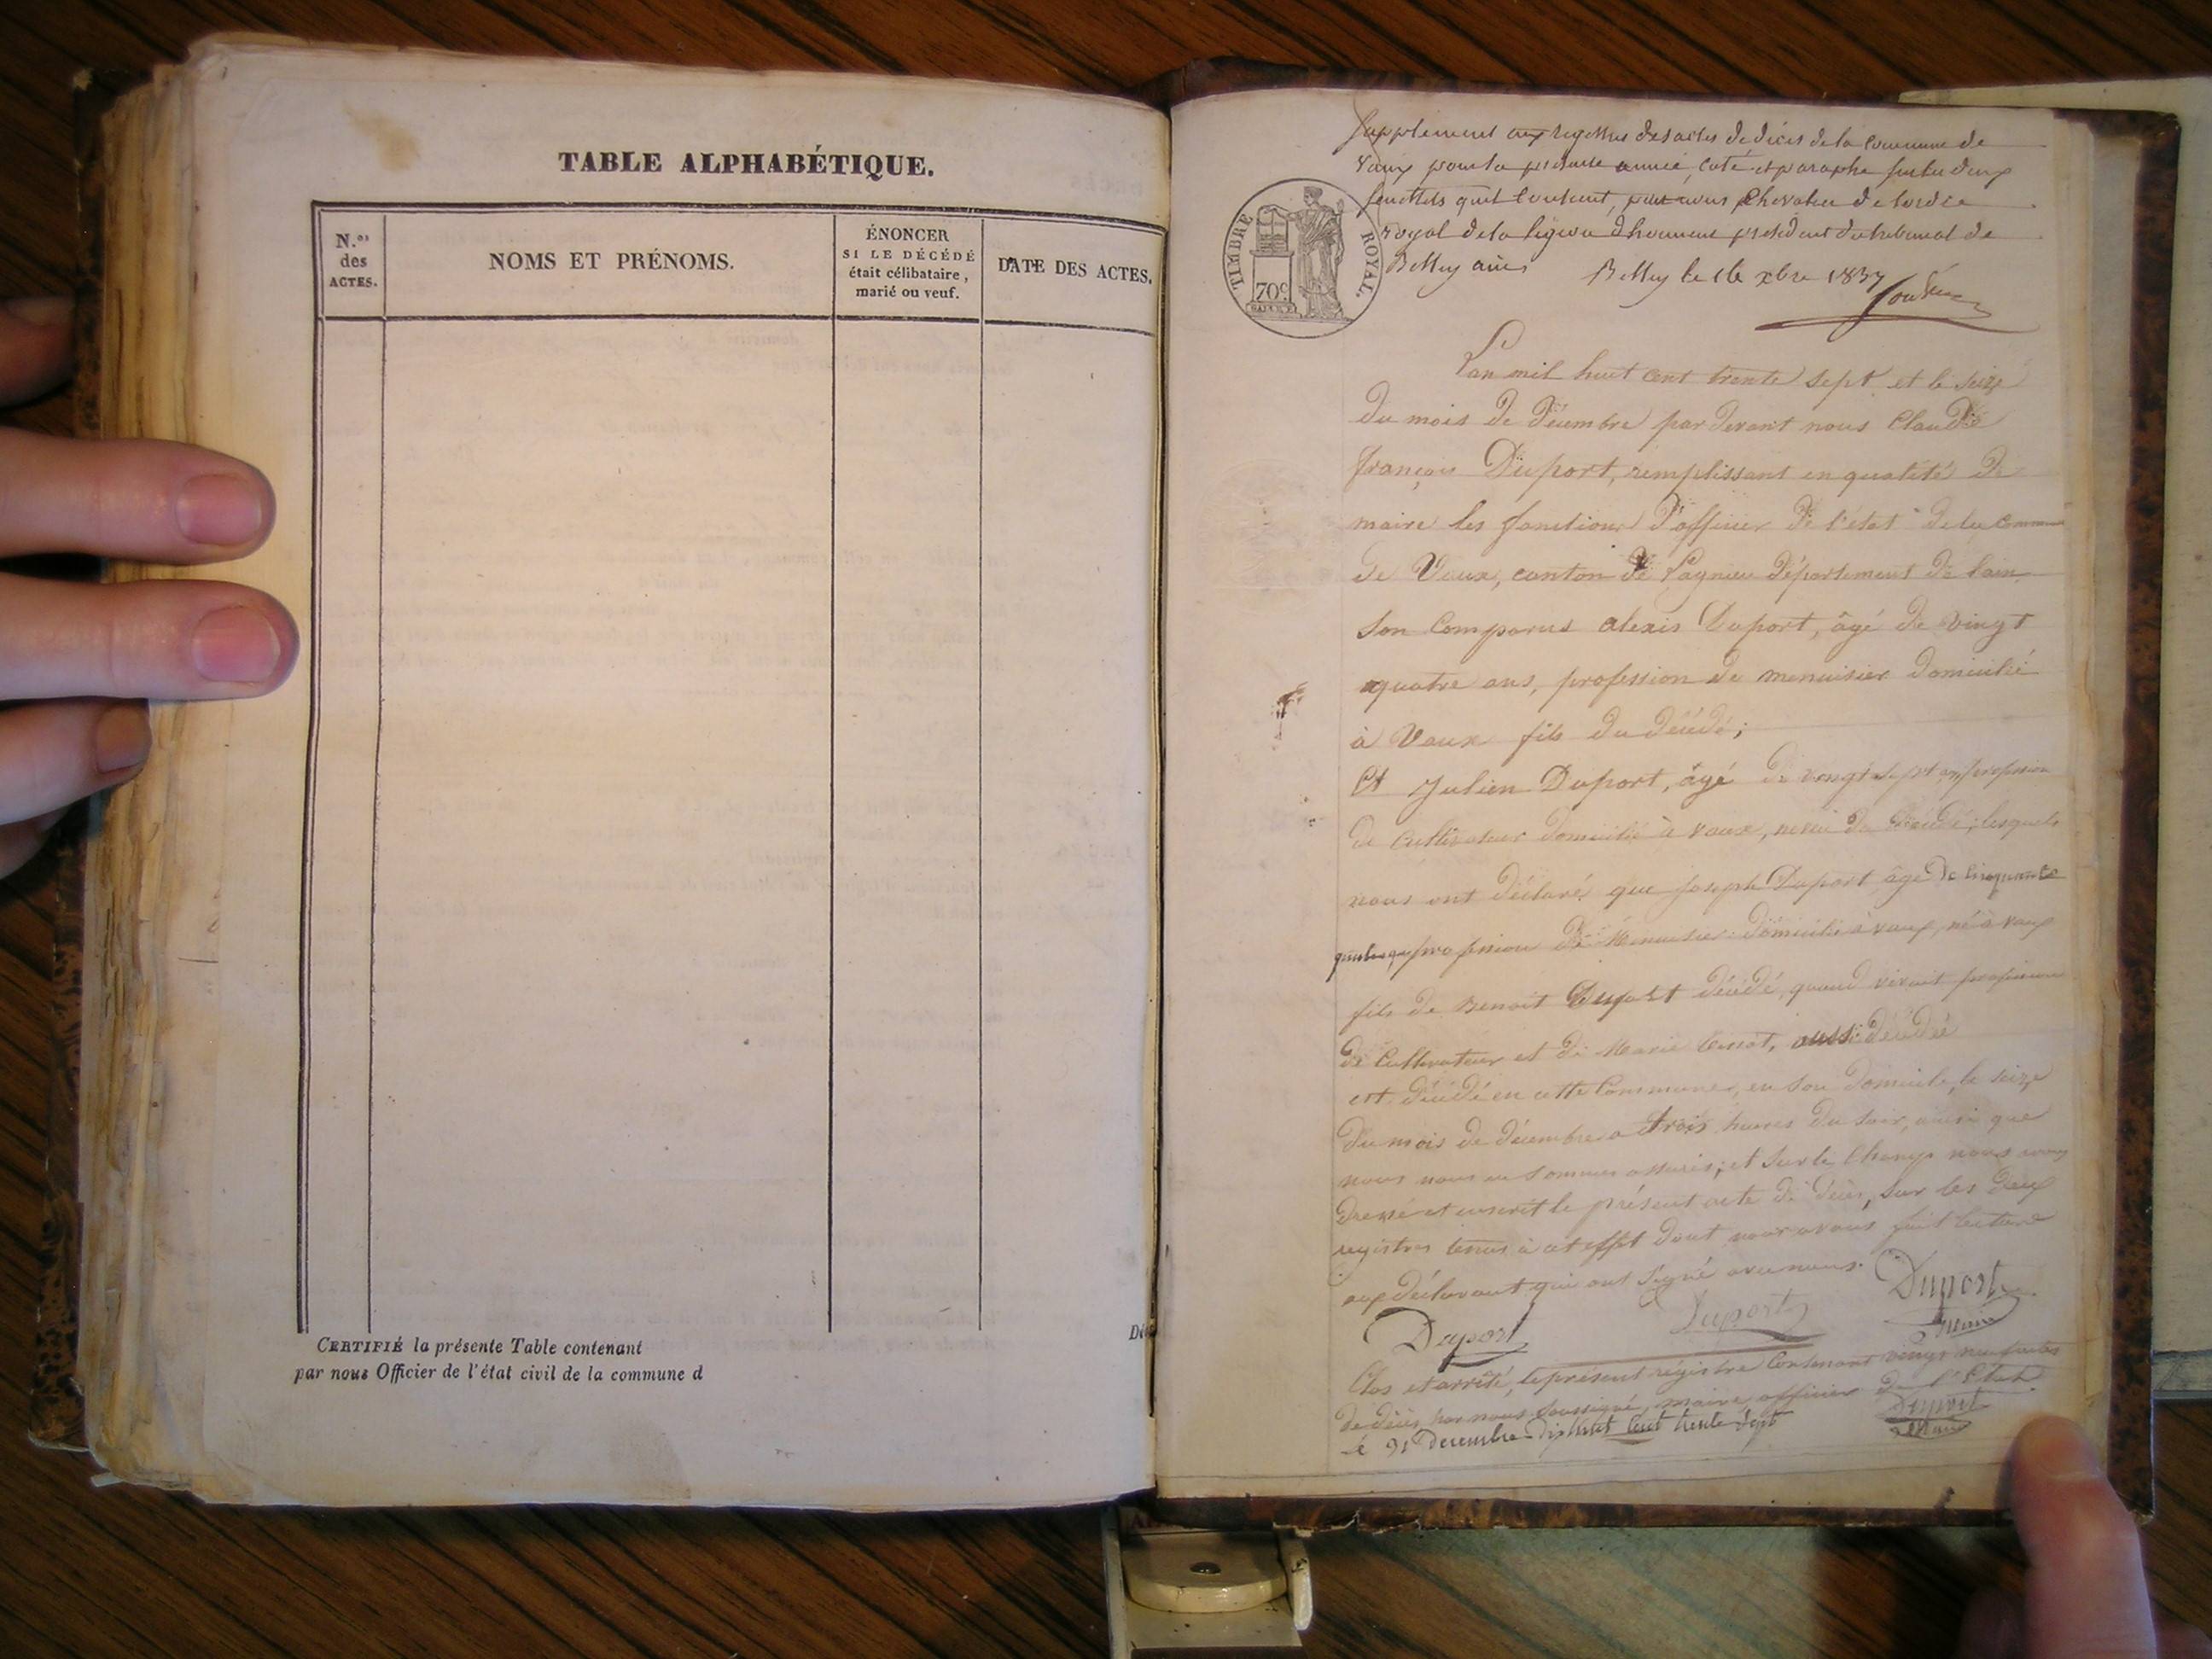 TABLE ALPHABÉTIQUE.
N.os des ACTES.
NOMS ET PRÉNOMS.
ÉNONCER
SI LE DÉCÉDÉ
était célibataire,
marié ou veuf.
DATE DES ACTES.
CERTIFIÉ la présente Table contenant
par nous Officier de l'état civil de la commune d
Supplement aux registres des actes de décès de la commune de
Vaux pour la présente année, coté et paraphé
feuillets quil contient, par nous Chevalier de lordre
royal de la légion dhonneur président du tribunal de
Belley
Belley le 16 xbre 1837
TIMBRE ROYAL.
70c
L'an mil huit cent trente sept et le seize
du mois de Décembre par devant nous Claude
françois Duport, remplissant en qualité de
maire les fonctions d'officier de l'état de la commune
de Vaux, canton de Lagnieu département de l'ain
son comparus alexis Duport, âgé de vingt
quatre ans, profession de menuisier domicilié
à Vaux fils du décédé;
Et Julien Duport, âgé de vingt sept ans profession
de cultivateur domicilié à vaux, neveu du décédé; lesquels
nous ont déclaré que joseph Duport âgé de cinquante
profession de Menuisier domicilié à vaux, né à vaux
fils de Benoit Duport décédé, quand vivait profession
de Cultivateur et de Marie aussi décédée
est décédé en cette Commune, en son domicile, le seize
du mois de décembre a trois heures du soir, ainsi que
nous nous en sommes assurés; et sur le champs nous avons
dressé et inscrit le présent acte de décès, sur les deux
registres tenus à cet effet dont nous avons fait lecture
aux déclarant qui ont signé avec nous.
Duport
Duport
Duport
Maire
Clos et arrêté, le présent régistre Contenant vingt neuf actes
de décès par nous soussigné, maire, officier de l'Etat
le 31 Decembre dix huit cent trente sept
Duport
Maire